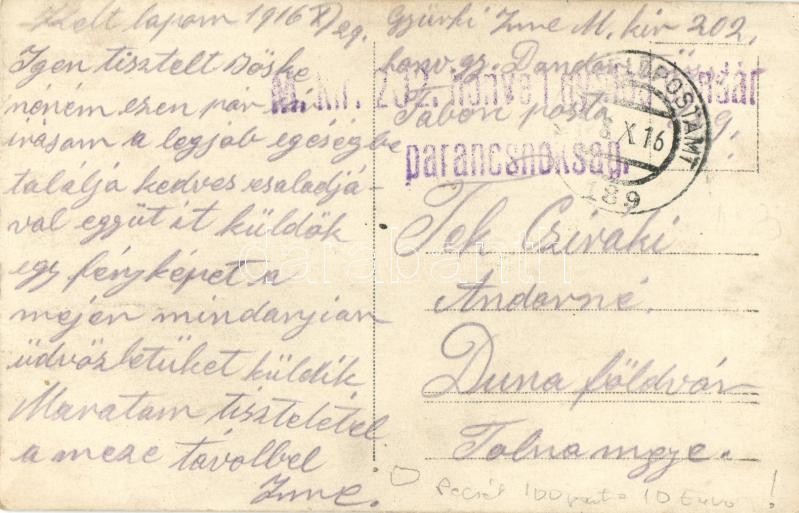 Kelt lapom 1916 X/29.
Igen tisztelt Böske
néném ezen pár
irásom a legjob egéségbe
találja kedves családjá-
val együt it küldök
egy fényképet a
mejen mindanyian
üdvözletüket küldik
Maratam tisztelétel
a meze távolbel
Imre.
Gyürki Imre M. kir 202.
honv. gy. Dandár
Tábori posta
M. kir. 202. honvéd gyalog dandár
parancsnokság.
LDPOSTAMT
X.16
189
Tek Cziráki
Andorné.
Duna földvár
Tolna mgye.
100 = 10 Euro !
darabanth